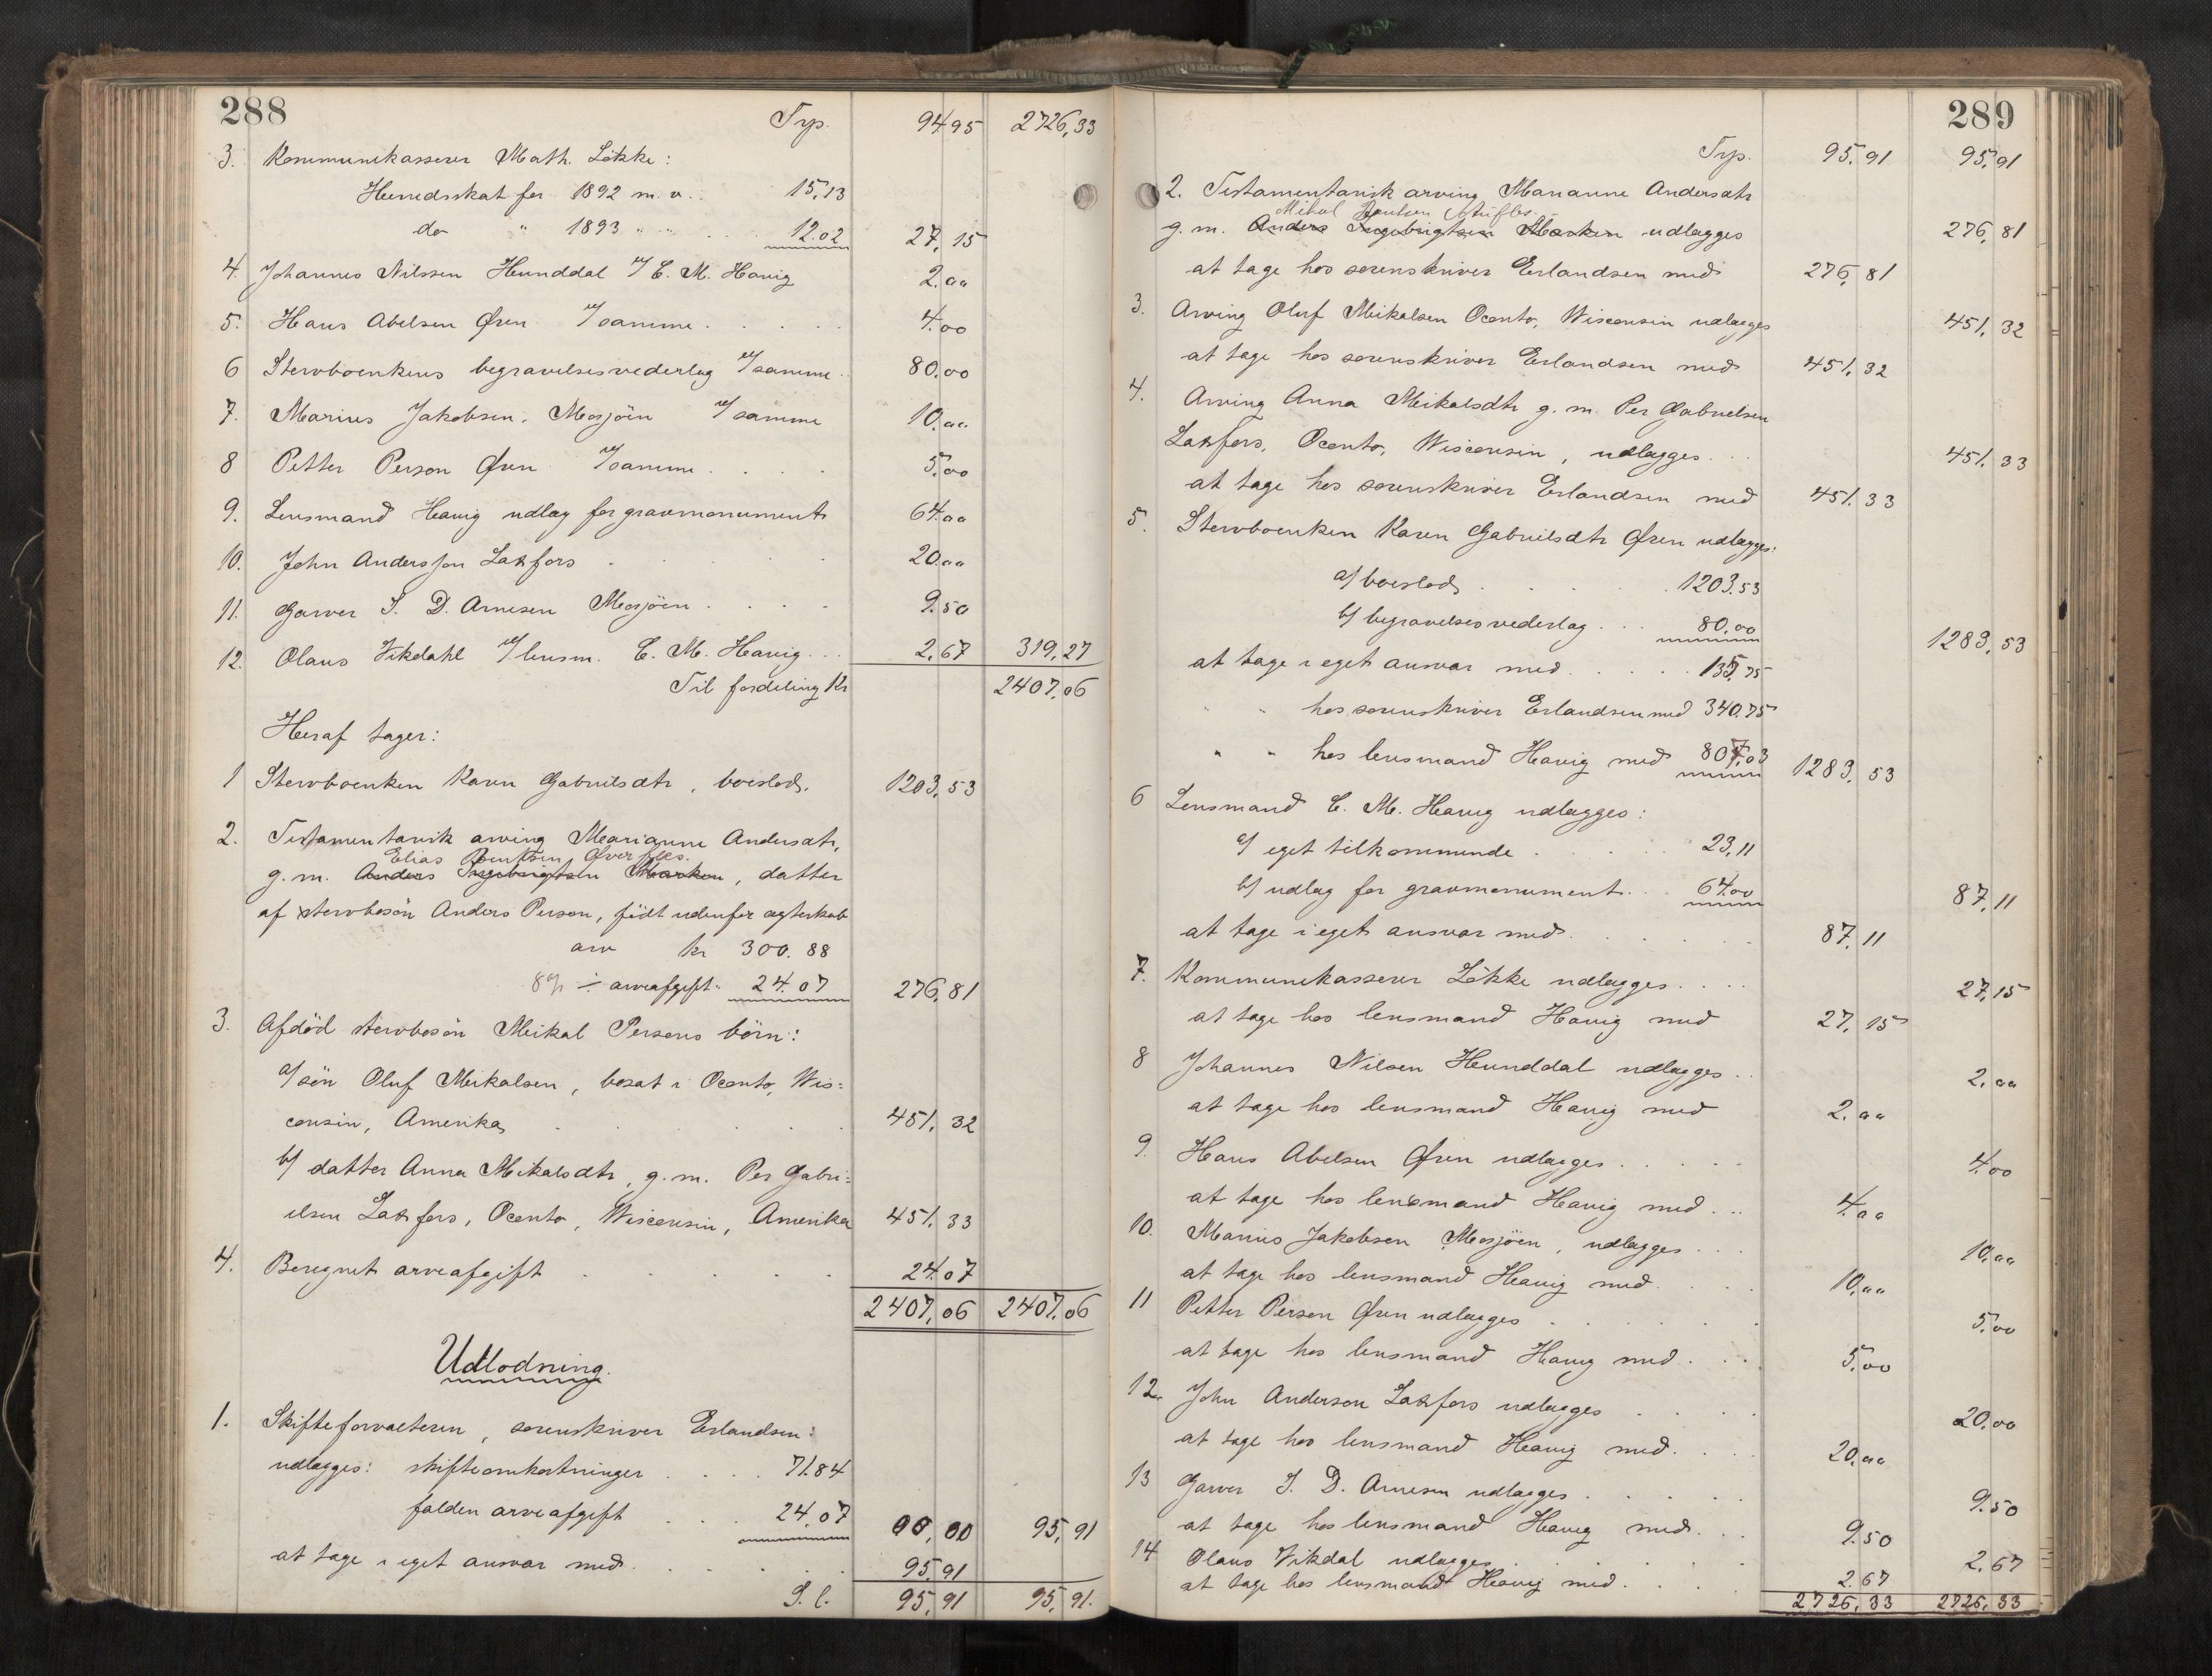 288
Trp. 94 95 2726,33
3. Kommunekasserer Math. Løkke:
Herredsskat for 1892 m. v. . 15,13
do " 1893 " " . . . 12.02 27,15
4. Johannes Nilssen Hunddal v/ C. M. Havig 2.00
5. Hans Abelsen Øren v/ samme . . . . . 4.00
6 Stervboenkens begravelsesvederlag v/ samme . 80.00
7. Marius Jakobsen, Mosjøen v/ samme 10.00
8 Petter Person Øren v/ samme . . . . 5.00
9. Lensmand Havig udlæg for gravmonument 64.00
10. John Andersson Laxfors . . . . 20.00
11. Garver I. D. Arnesen Mosjøen . . . . 9.50
12. Olaus Vikdahl v/ lensm. C. M. Havig . . . 2,67 319,27
Til fordeling Kr 2407.06
Heraf tager:
1 Stervboenken Karen Gabrielsdtr, boeslod. 1203,53
2. Testamentarisk arving Marianne Andersdtr,
Elias Øverfles.
g. m. Anders Ingebrigtsen Marken, datter
af stervbosøn Anders Person, født udenfor ægteskab
arv kr 300.88
8% ÷ arveafgift " 24.07 276,81
3. Afdød stervbosøn Meikal Persens børn:
a/ søn Oluf Meikalsen, bosat i Oconto, Wis=
consin, Amerika . . . . . . 451.32
b/ datter Anna Mikalsdtr, g. m. Per Gabri=
elsen Laxfors, Oconto, Wisconsin, Amerika 451.33
4. Beregnet arveafgift . . . . . 24.07
2407,06 2407.06
Udlodning.
1. Skifteforvalteren, sorenskriver Erlandsen:
udlægges: skifteomkostninger . . . . 71.84
falden arveafgift . . . . 24.07 00,00 95,91
at tage i eget ansvar med . . . . . . 95.91
S. l. 95,91 95,91.
289
Trp. 95.91 95,91
2. Testamentarisk arving Marianne Andersdtr
Mikal
g. m. Anders Ingebrigtsen Marken udlægges 276,81
at tage hos sorenskriver Erlandsen med 276,81
3. Arving Oluf Meikalsen Oconto, Wisconsin udlægges 451.32
at tage hos sorenskriver Erlandsen med 451.32
4. Arving Anna Meikalsdtr g. m. Per Gabrielsen
Laxfors, Oconto, Wisconsin, udlægges . . . 451.33
at tage hos sorenskriver Erlandsen med 451.33
5. Stervboenken Karen Gabrielsdtr Øren udlægges:
a/ boeslod . . . . . . 1203.53
b/ begravelsesvederlag . . . 80.00 1283,53
at tage i eget ansvar med . . . . . 135,75
" " hos sorenskriver Erlandsen med 340.75
" " hos lensmand Havig med 807,03 1283,53
6 Lensmand C. M. Havig udlægges:
a/ eget tilkommende . . . . . 23,11
b/ udlæg for gravmonument . . . 64.00 87,11
at tage i eget ansvar med . . . . . . 87,11
7. Kommunekasserer Løkke udlægges . . . . 27,15
at tage hos lensmand Havig med 27,15
8 Johannes Nilsen Hunddal udlægges . . 2.00
at tage hos lensmand Havig med 2.00
9. Hans Abelsen Øren udlægges . . . . . 4.00
at tage hos lensmand Havig med . . . 4.00
10. Marius Jakobsen Mosjøen, udlægges . . . 10.00
at tage hos lensmand Havig med . . . . 10,00
11 Petter Person Øren udlægges . . . . . . 5.00
at tage hos lensmand Havig med . . . . 5.00
12. John Anderson Laxfors udlægges . . . . 20.00
at tage hos lensmand Havig med . . . . 20,00
13 Garver I. D. Arnesen udlægges . . . . . 9.50
at tage hos lensmand Havig med . . . 9.50
14 Olaus Vikdal udlægges . . . . . . 2,67
at tage hos lensmand Havig med . . . . 2.67
2726,33 2726,33